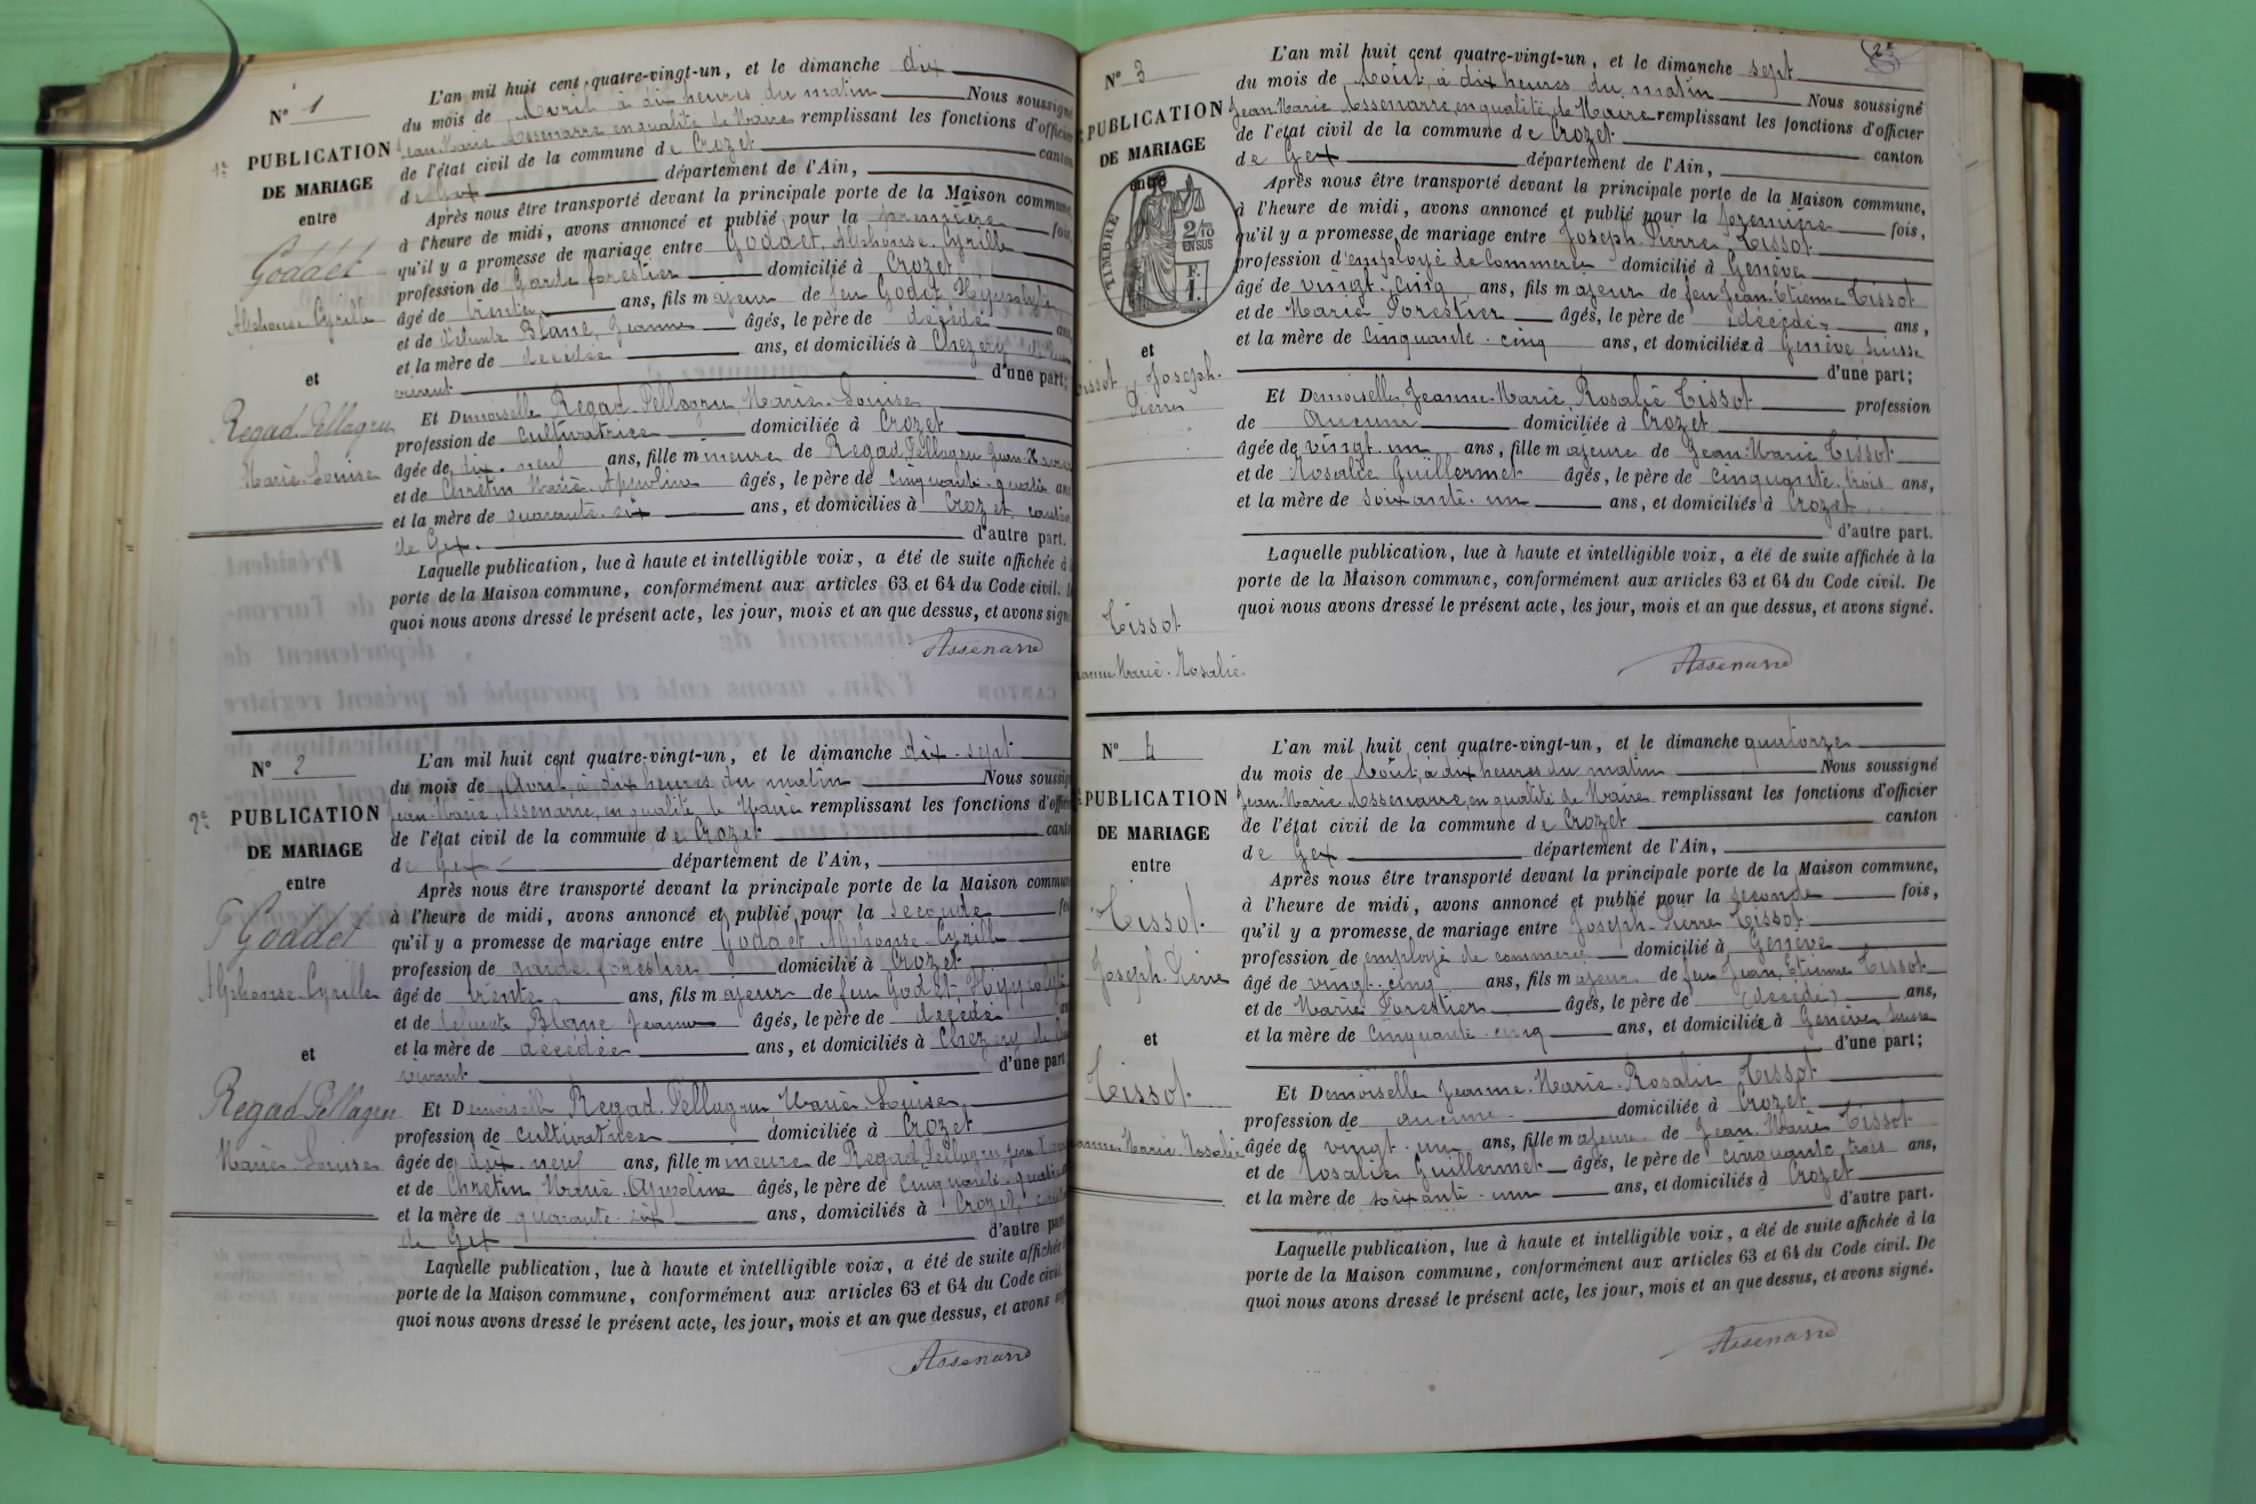 N° 1
1e PUBLICATION
DE MARIAGE
entre
Goddet
Alphonse Cyrille
et
Regad Pellagru
Marie-Louise
L'an mil huit cent quatre-vingt-un, et le dimanche dix
du mois de Avril à dix heures du matin Nous soussigné
Jean-Marie Assenarre en qualité de Maire remplissant les fonctions d'officier
de l'état civil de la commune de Crozet canton
de Gex département de l'Ain,
Après nous être transporté devant la principale porte de la Maison commune,
à l'heure de midi, avons annoncé et publié pour la première fois,
qu'il y a promesse de mariage entre Goddet, Alphonse Cyrille
profession de Garde forestier domicilié à Crozet
âgé de trente ans, fils majeur de feu Godet Hyppolyte
et de défunte Blanc, Jeanne âgés, le père de décédé ans
et la mère de décédée ans, et domiciliés à Chezery de leur
vivant d'une part;
Et Demoiselle Regad-Pellagru Marie-Louise
profession de cultivatrice domiciliée à Crozet
âgée de dix-neuf ans, fille mineure de Regad Pellagru Jean
et de Chrétin Marie-Appoline âgés, le père de cinquante-quatre ans
et la mère de quarante-six ans, et domiciliés à Crozet canton
de Gex. d'autre part.
Laquelle publication, lue à haute et intelligible voix, a été de suite affichée à
porte de la Maison commune, conformément aux articles 63 et 64 du Code civil.
quoi nous avons dressé le présent acte, les jour, mois et an que dessus, et avons sign
Assenarre
N° 2
2e PUBLICATION
DE MARIAGE
entre
Goddet
Alphonse-Cyrille
et
Regad Pellagru
Marie-Louise
L'an mil huit cent quatre-vingt-un, et le dimanche dix-sept
du mois de Avril, à dix heures du matin Nous soussig
Jean-Marie Assenarre, en qualité de Maire remplissant les fonctions d'offici
de l'état civil de la commune de Crozet canto
de Gex département de l'Ain,
Après nous être transporté devant la principale porte de la Maison commun
à l'heure de midi, avons annoncé et publié pour la seconde fo
qu'il y a promesse de mariage entre Godaet Alphonse-Cyrille
profession de garde forestier domicilié à Crozet
âgé de trente ans, fils majeur de feu Godet, Hyppolyte
et de défunte Blanc Jeanne âgés, le père de décédé
et la mère de décédée ans, et domiciliés à Chezery de leur
vivant d'une part
Et Demoiselle Regad-Pellagru Marie-Louise
profession de cultivatrice domiciliée à Crozet
âgée de dix-neuf ans, fille mineure de Regad Pellagru Jean
et de Chrétin Marie-Appoline âgés, le père de cinquante-quatre
et la mère de quarante-six ans, domiciliés à Crozet, canton
de Gex d'autre part
Laquelle publication, lue à haute et intelligible voix, a été de suite affichée
porte de la Maison commune, conformément aux articles 63 et 64 du Code civil.
quoi nous avons dressé le présent acte, les jour, mois et an que dessus, et avons
Assenarre
2e
N° 3
PUBLICATION
DE MARIAGE
entre
TIMBRE
2/10
EN SUS
F.
1.
et
Tissot Joseph-
Pierre
Tissot
Jeanne Marie-Rosalie
L'an mil huit cent quatre-vingt-un, et le dimanche sept
du mois de Août, à dix heures du matin Nous soussigné
Jean-Marie Assenarre, en qualité de Maire remplissant les fonctions d'officier
de l'état civil de la commune de Crozet canton
de Gex département de l'Ain,
Après nous être transporté devant la principale porte de la Maison commune,
à l'heure de midi, avons annoncé et publié pour la première fois,
qu'il y a promesse de mariage entre Joseph-Pierre Tissot
profession d'employé de Commerce domicilié à Genève
âgé de vingt-cinq ans, fils majeur de feu Jean-Etienne Tissot
et de Marie Forestier âgés, le père de décédé ans,
et la mère de cinquante-cinq ans, et domiciliée à Genève, Suisse
d'une part;
Et Demoiselle, Jeanne-Marie Rosalie Tissot profession
de Aucune domiciliée à Crozet
âgée de vingt-un ans, fille majeure de Jean-Marie Tissot
et de Rosalie Guillermet âgés, le père de cinquante-trois ans,
et la mère de soixante-un ans, et domiciliés à Crozet
d'autre part.
Laquelle publication, lue à haute et intelligible voix, a été de suite affichée à la
porte de la Maison commune, conformément aux articles 63 et 64 du Code civil. De
quoi nous avons dressé le présent acte, les jour, mois et an que dessus, et avons signé.
Assenarre
N° 4
PUBLICATION
DE MARIAGE
entre
Tissot
Joseph-Pierre
et
Tissot
Jeanne-Marie-Rosalie
L'an mil huit cent quatre-vingt-un, et le dimanche quatorze
du mois de Août, à dix heures du matin Nous soussigné
Jean-Marie Assenarre, en qualité de Maire remplissant les fonctions d'officier
de l'état civil de la commune de Crozet canton
de Gex département de l'Ain,
Après nous être transporté devant la principale porte de la Maison commune,
à l'heure de midi, avons annoncé et publié pour la seconde fois,
qu'il y a promesse de mariage entre Joseph-Pierre Tissot
profession de employé de commerce domicilié à Genève
âgé de vingt-cinq ans, fils majeur de feu Jean, Etienne Tissot
et de Marie Forestier âgés, le père de (décédé) ans,
et la mère de cinquante-cinq ans, et domiciliée à Genève Suisse
d'une part;
Et Demoiselle Jeanne-Marie-Rosalie Tissot
profession de aucune domiciliée à Crozet
âgée de vingt-un ans, fille majeure de Jean-Marie Tissot
et de Rosalie Guillermet âgés, le père de cinquante trois ans,
et la mère de soixante-un ans, et domiciliés à Crozet
d'autre part.
Laquelle publication, lue à haute et intelligible voix, a été de suite affichée à la
porte de la Maison commune, conformément aux articles 63 et 64 du Code civil. De
quoi nous avons dressé le présent acte, les jour, mois et an que dessus, et avons signé.
Assenarre